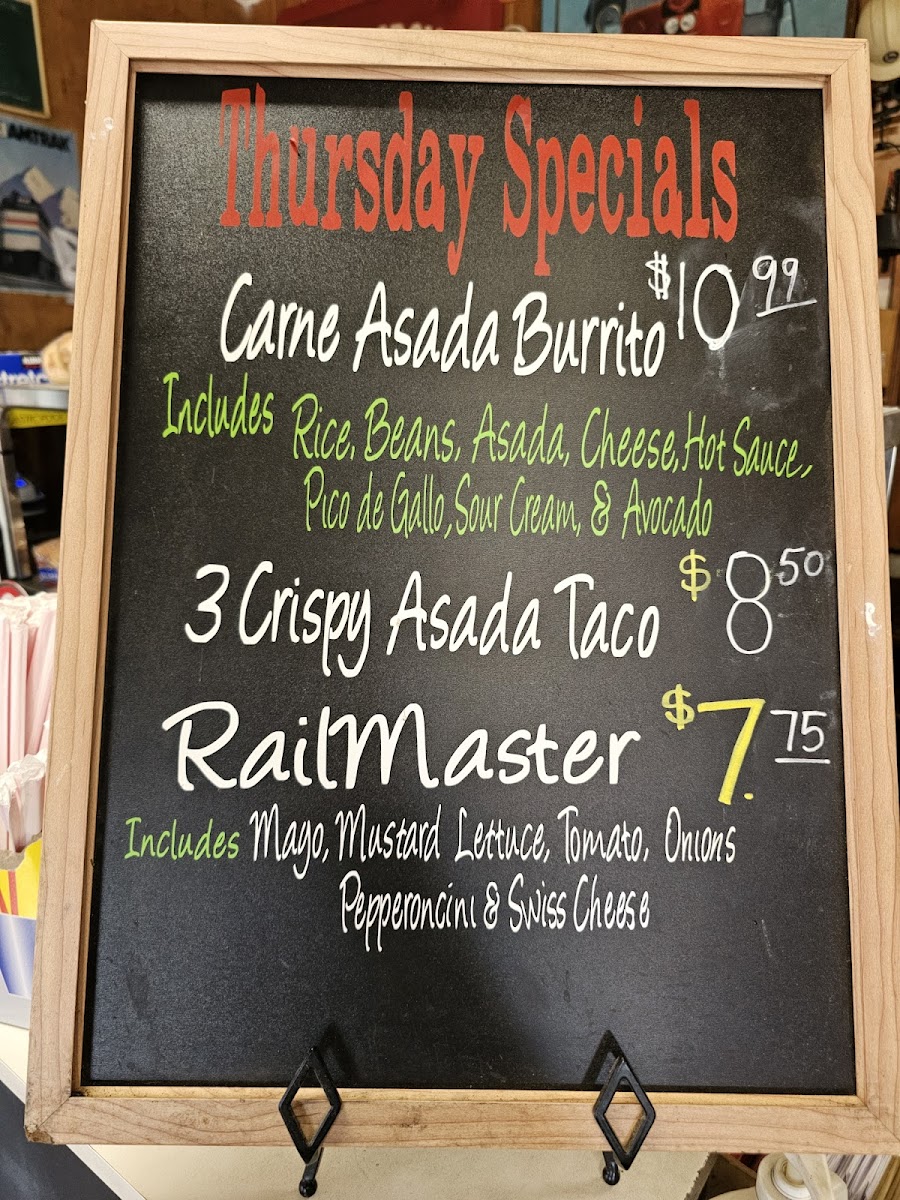 AMTRAK
Thursday Specials
Carne Asada Burrito $10 99
Includes Rice, Beans, Asada, Cheese, Hot Sauce,
Pico de Gallo, Sour Cream, & Avocado
3 Crispy Asada Taco $8 50
RailMaster $7. 75
Includes Mayo, Mustard Lettuce, Tomato, Onions
Pepperoncini & Swiss Cheese